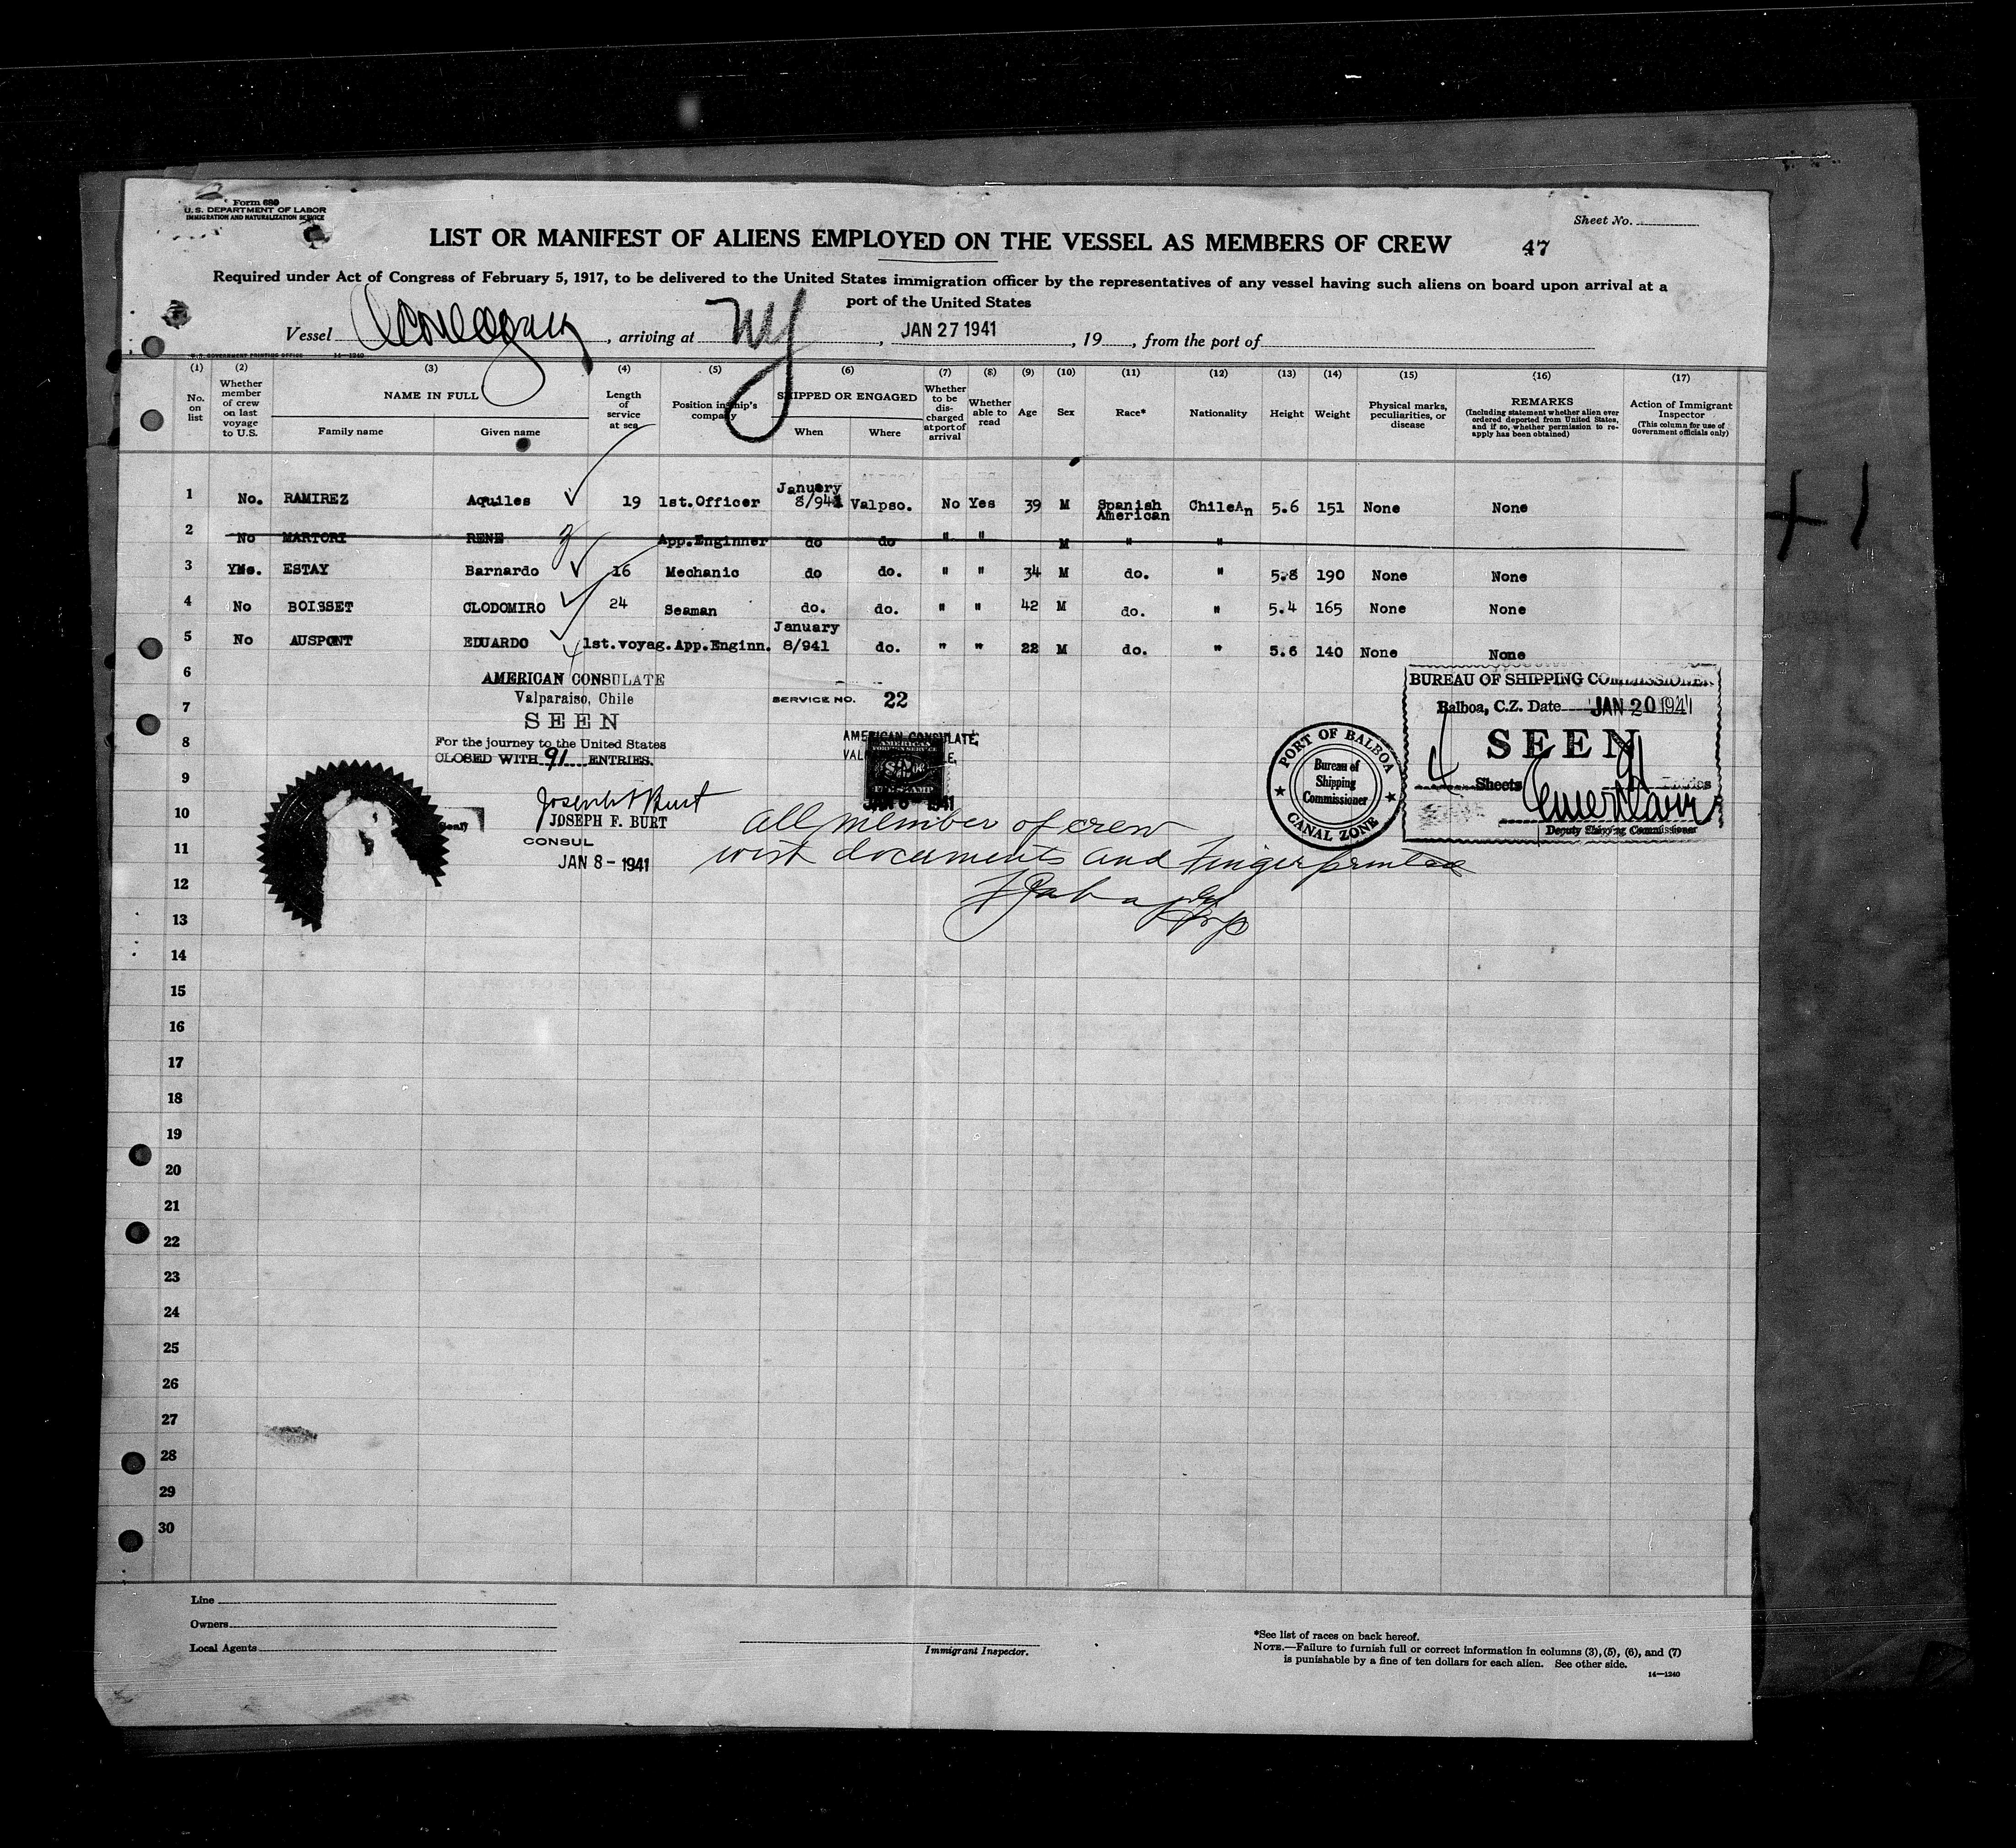 Form 680
U.S. DEPARTMENT OF LABOR
IMMIGRATION AND NATURALIZATION SERVICE
Sheet No.
LIST OR MANIFEST OF ALIENS EMPLOYED ON THE VESSEL AS MEMBERS OF CREW 47
Required under Act of Congress of February 5, 1917, to be delivered to the United States immigration officer by the representatives of any vessel having such aliens on board upon arrival at a
port of the United States
Vessel Aconcagua, arriving at NY, JAN 27 1941, 19 , from the port of
U.S. GOVERNMENT PRINTING OFFICE 14—1240
(1) (2) (3) (4) (5) (6) (7) (8) (9) (10) (11) (12) (13) (14) (15) (16) (17)
No. on list
Whether member of crew on last voyage to U.S.
NAME IN FULL
Family name Given name
Length of service at sea
Position in ship's company
SHIPPED OR ENGAGED
When Where
Whether to be discharged at port of arrival
Whether able to read
Age
Sex
Race*
Nationality
Height
Weight
Physical marks, peculiarities, or disease
REMARKS
(Including statement whether alien ever ordered deported from United States, and if so, whether permission to reapply has been obtained)
Action of Immigrant Inspector
(This column for use of Government officials only)
1 No. RAMIREZ Aquiles 19 1st.Officer January 8/941 Valpso. No Yes 39 M Spanish American ChileAn 5.6 151 None None
2 No MARTORI RENE App.Enginner do do " " M " "
3 YNo. ESTAY Barnardo 16 Mechanic do do. " " 34 M do. " 5.8 190 None None
4 No BOISSET CLODOMIRO 24 Seaman do. do. " " 42 M do. " 5.4 165 None None
5 No AUSPONT EDUARDO 1st.voyag. App.Enginn. January 8/941 do. " " 22 M do. " 5.6 140 None None
6
7
8
9
10
11
12
13
14
15
16
17
18
19
20
21
22
23
24
25
26
27
28
29
30
AMERICAN CONSULATE
Valparaiso, Chile
SEEN
For the journey to the United States
CLOSED WITH 91 ENTRIES.
Seal
Joseph F Burt
JOSEPH F. BURT
CONSUL
JAN 8 - 1941
SERVICE NO. 22
AMERICAN CONSULATE,
AMERICAN
FOREIGN SERVICE
FEE STAMP
1941
All member of crew
wist documents and Fingerprinted
PORT OF BALBOA
Bureau of
Shipping
Commissioner
CANAL ZONE
BUREAU OF SHIPPING COMMISSIONER
Balboa, C.Z. Date JAN 20 1941
SEEN
4 Sheets 91
Deputy Shipping Commissioner
+1
Line
Owners
Local Agents
Immigrant Inspector.
*See list of races on back hereof.
NOTE.—Failure to furnish full or correct information in columns (3), (5), (6), and (7)
is punishable by a fine of ten dollars for each alien. See other side.
14—1240